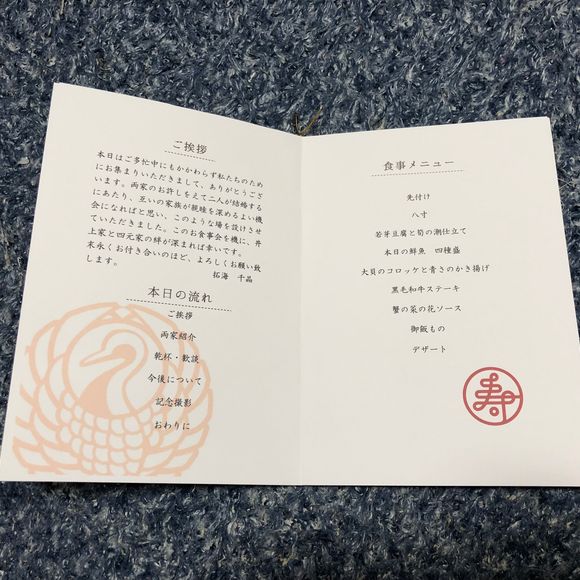 ご挨拶
本日はご多忙中にもかかわらず私たちのため
にお集まりいただきまして、ありがとうござ
います。両家のお許しをえて二人が結婚する
にあたり、互いの家族が親睦を深めるよい機
会になればと思い、このような場を設けさせ
ていただきました。このお食事会を機に、井
上家と四元家の絆が深まれば幸いです。
末永くお付き合いのほど、よろしくお願い致
します。
拓海 千晶
本日の流れ
ご挨拶
両家紹介
乾杯・歓談
今後について
記念撮影
おわりに
食事メニュー
先付け
八寸
若芽豆腐と筍の潮仕立て
本日の鮮魚 四種盛
大貝のコロッケと青さのかき揚げ
黒毛和牛ステーキ
蟹の菜の花ソース
御飯もの
デザート
寿